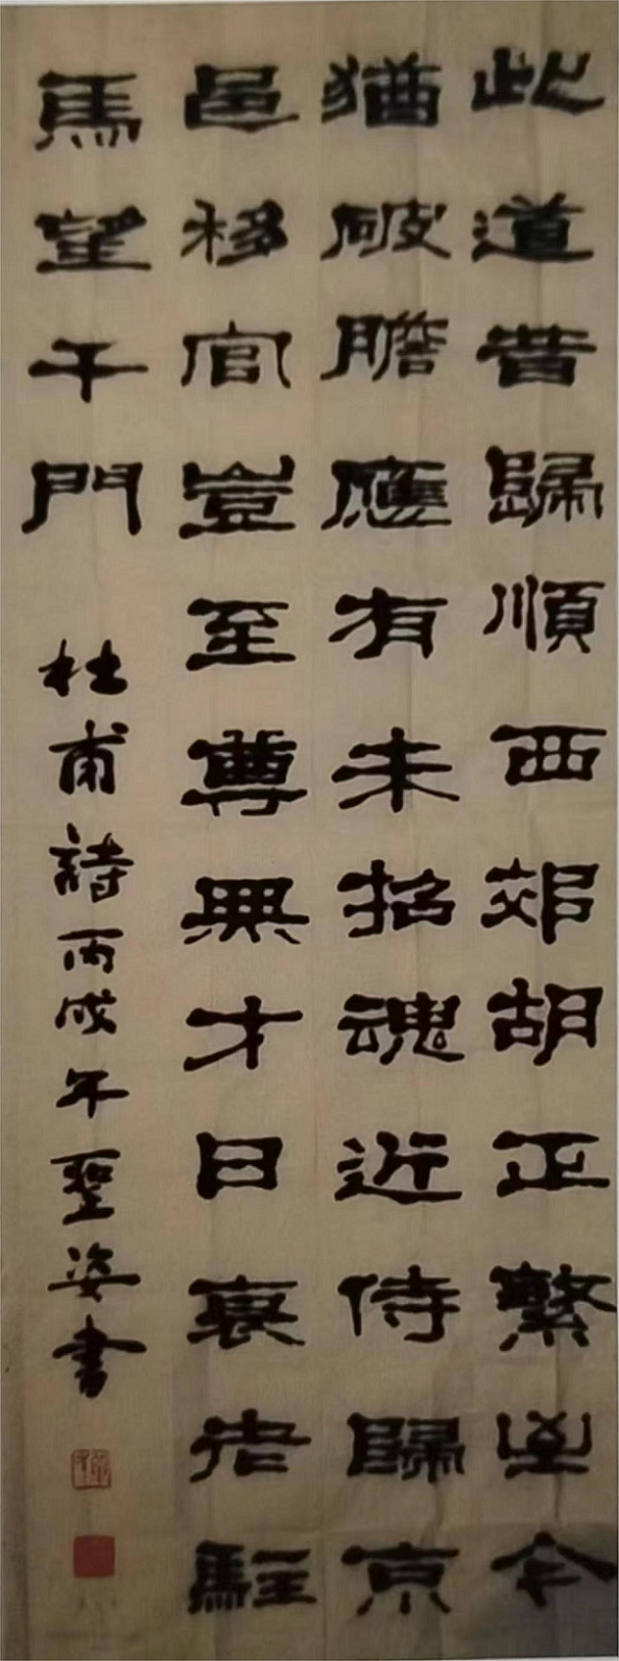 此道昔歸順西郊胡正繁至今
猶破膽應有未招魂近侍歸京
邑移官豈至尊無才日衰老駐
馬望千門
杜甫詩丙戌年聖姿書